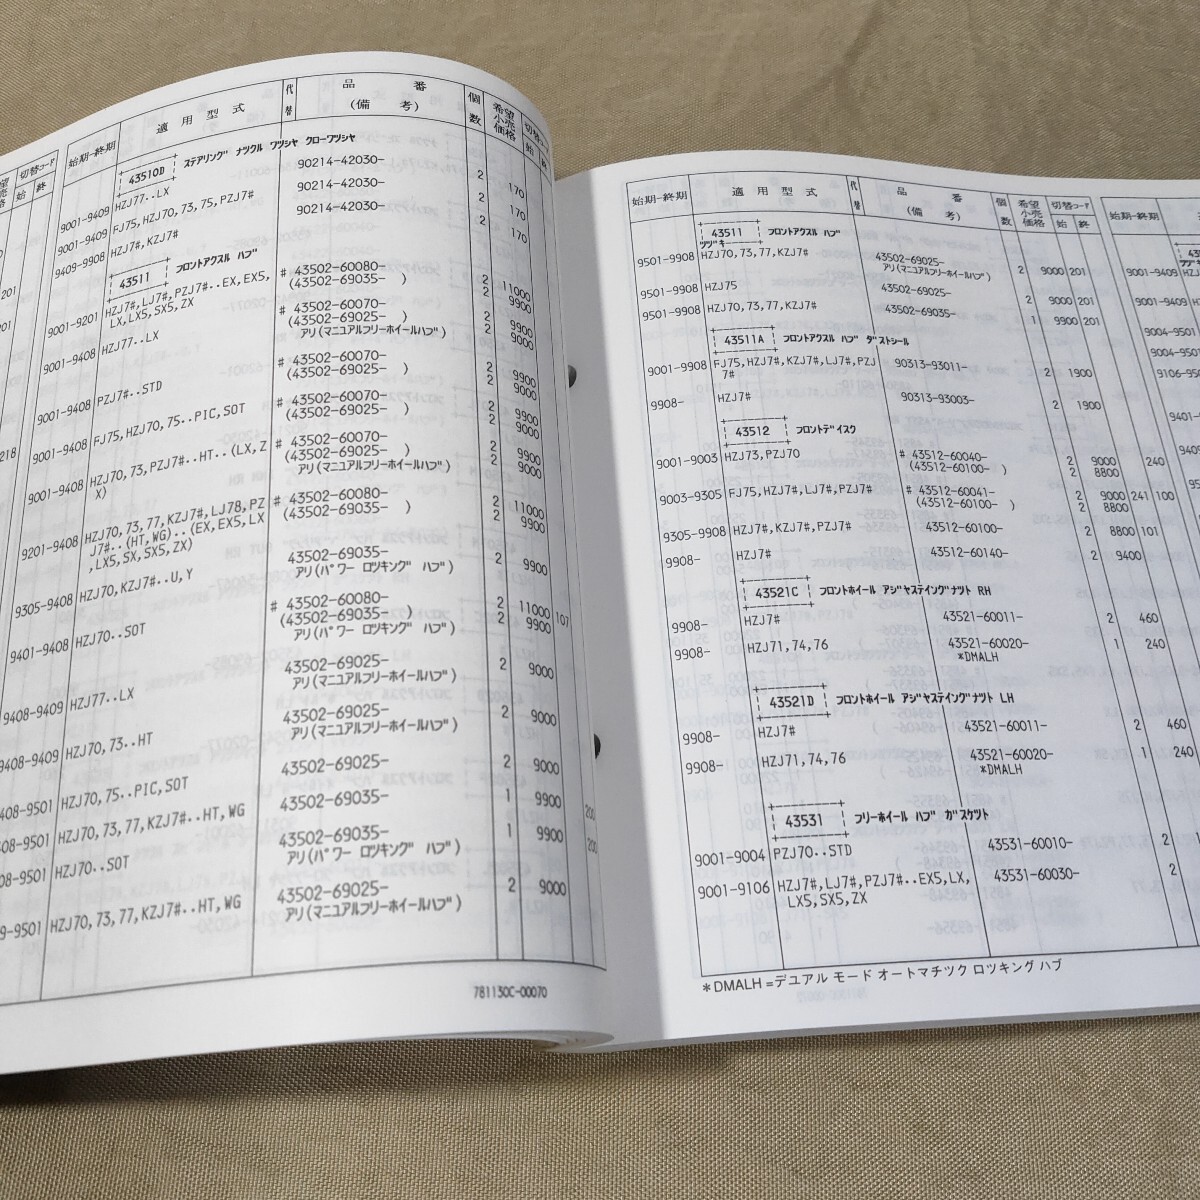 始期-終期
適用型式
代替
品番
(備考)
個数
希望小売価格
切替コード
始 終
43510D ステアリング ナツクル ワツシヤ クローワツシヤ
9001-9409 HZJ77..LX 90214-42030- 2 170
9001-9409 FJ75,HZJ70,73,75,PZJ7# 90214-42030- 2 170
9409-9908 HZJ7#,KZJ7# 90214-42030- 2 170
43511 フロントアクスル ハブ
9001-9201 HZJ7#,LJ7#,PZJ7#..EX,EX5, # 43502-60080- 2 11000
LX,LX5,SX5,ZX (43502-69035- ) 2 9900
9001-9408 HZJ77..LX # 43502-60070- 2 9900
(43502-69035- ) 2 9000
アリ(マニュアルフリーホイールハブ)
9001-9408 PZJ7#..STD # 43502-60070- 2 9900
(43502-69025- ) 2 9000
9001-9408 FJ75,HZJ70,75..PIC,SOT # 43502-60070- 2 9900
(43502-69025- ) 2 9000
9001-9408 HZJ70,73,PZJ7#..HT..(LX,Z # 43502-60070- 2 9900
X) (43502-69025- ) 2 9000
アリ(マニュアルフリーホイールハブ)
9201-9408 HZJ70,73,77,KZJ7#,LJ78,PZ # 43502-60080- 2 11000
J7#..(HT,WG)..(EX,EX5,LX (43502-69035- ) 2 9900
,LX5,SX,SX5,ZX)
9305-9408 HZJ70,KZJ7#..U,Y 43502-69035- 2 9900
アリ(パワー ロツキング ハブ)
9401-9408 HZJ70..SOT # 43502-60080- 2 11000 107
(43502-69035- ) 2 9900
アリ(パワー ロツキング ハブ)
9408-9409 HZJ77..LX 43502-69025- 2 9000
アリ(マニュアルフリーホイールハブ)
9408-9409 HZJ70,73..HT 43502-69025- 2 9000
アリ(マニュアルフリーホイールハブ)
9408-9501 HZJ70,75..PIC,SOT 43502-69025- 2 9000
408-9501 HZJ70,73,77,KZJ7#..HT,WG 43502-69035- 1 9900 200
08-9501 HZJ70..SOT 43502-69035- 1 9900 200
アリ(パワー ロツキング ハブ)
9-9501 HZJ70,73,77,KZJ7#..HT,WG 43502-69025- 2 9000
アリ(マニュアルフリーホイールハブ)
781130C-00070
始期-終期
適用型式
代替
品番
(備考)
個数
希望小売価格
切替コード
始 終
始期-終期
43511 フロントアクスル ハブ
ツヅキ
9501-9908 HZJ70,73,77,KZJ7# 43502-69025- 2 9000 201
アリ(マニュアルフリーホイールハブ)
9501-9908 HZJ75 43502-69025- 2 9000 201
9501-9908 HZJ70,73,77,KZJ7# 43502-69035- 1 9900 201
43511A フロントアクスル ハブ ダストシール
9001-9908 FJ75,HZJ7#,KZJ7#,LJ7#,PZJ 90313-93011- 2 1900
7#
9908- HZJ7# 90313-93003- 2 1900
43512 フロントデイスク
9001-9003 HZJ73,PZJ70 # 43512-60040- 2 9000 240
(43512-60100- ) 2 8800
9003-9305 FJ75,HZJ7#,LJ7#,PZJ7# # 43512-60041- 2 9000 241 100
(43512-60100- ) 2 8800
9305-9908 HZJ7#,KZJ7#,PZJ7# 43512-60100- 2 8800 101
9908- HZJ7# 43512-60140- 2 9400
43521C フロントホイール アジヤステイングナツト RH
9908- HZJ7# 43521-60011- 2 460
9908- HZJ71,74,76 43521-60020- 1 240
*DMALH
43521D フロントホイール アジヤステイングナツト LH
9908- HZJ7# 43521-60011- 2 460
9908- HZJ71,74,76 43521-60020- 1 240
*DMALH
43531 フリーホイール ハブ ガスケツト
9001-9004 PZJ70..STD 43531-60010- 2
9001-9106 HZJ7#,LJ7#,PZJ7#..EX5,LX, 43531-60030- 2
LX5,SX5,ZX
*DMALH =デユアル モード オートマチツク ロツキング ハブ
9001-9409
9001-9409
9004-9501